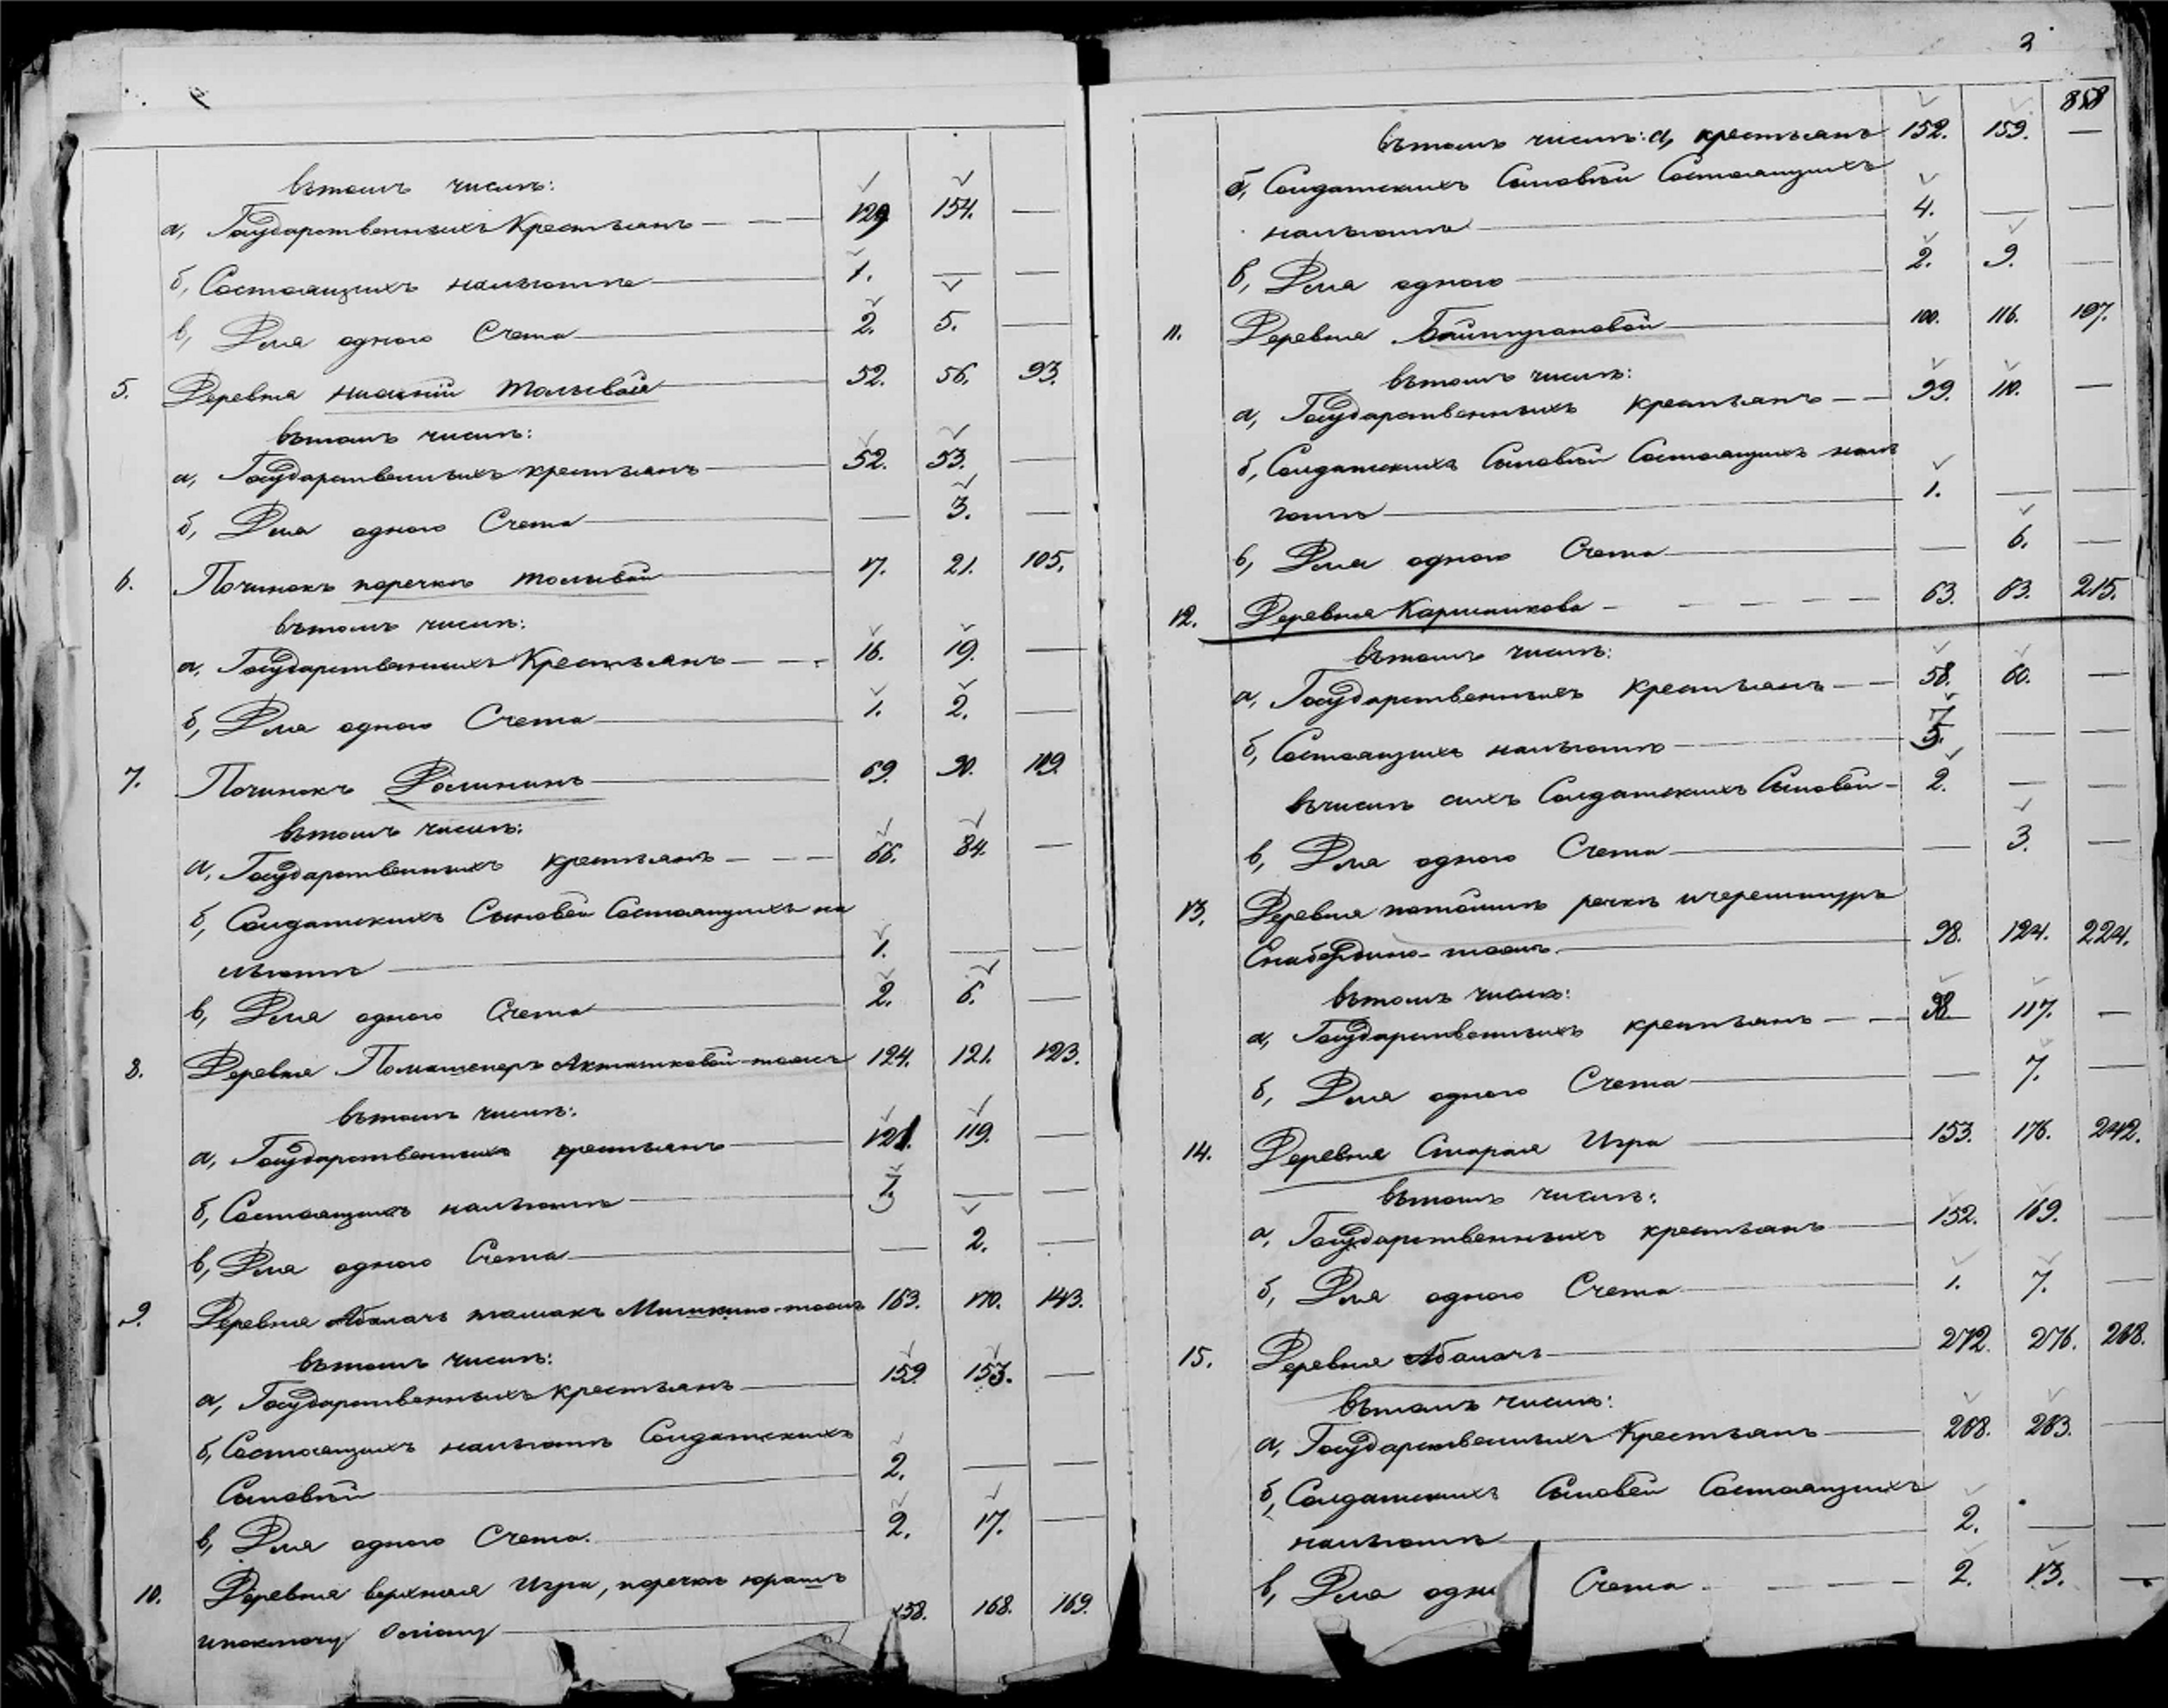 въ томъ числѣ:
а, Государственныхъ Крестьянъ 129 154. —
б, Состоящихъ нальготѣ 1. — —
в, Для одного Счета 2. 5. —
5. Деревня нижній Толывай 52. 56. 93.
въ томъ числѣ:
а, Государственныхъ крестьянъ 52. 53. —
б, Для одного Счета — 3. —
6. Починокъ поречкѣ толывай 17. 21. 105.
въ томъ числѣ:
а, Государственныхъ Крестьянъ 16. 19. —
б, Для одного Счета 1. 2. —
7. Починокъ 69. 90. 119.
въ томъ числѣ:
а, Государственныхъ крестьянъ 66. 84. —
б, Солдатскихъ Сыновей Состоящихъ на
льготѣ 1. — —
в, Для одного Счета 2. 6. —
8. Деревня 124. 121. 123.
въ томъ числѣ:
а, Государственныхъ крестьянъ 121. 119. —
б, Состоящихъ нальготѣ — —
в, Для одного Счета — 2. —
9. Деревня Абаларъ Мишкино-тожъ 163. 170. 143.
въ томъ числѣ:
а, Государственныхъ крестьянъ 159. 153. —
б, Состоящихъ нальготѣ Солдатскихъ
Сыновей 2. — —
в, Для одного Счета. 2. 17. —
10. Деревня верхняя Игра, поречкѣ
158. 168. 169.
3
858
въ томъ числѣ: а, крестьянъ 152. 159. —
б, Солдатскихъ Сыновей Состоящихъ
нальготѣ 4. — —
в, Для одного 2. 9. —
11. Деревня Баитугановой 100. 116. 197.
въ томъ числѣ:
а, Государственныхъ крестьянъ 99. 110. —
б, Солдатскихъ Сыновей Состоящихъ наль
готѣ 1. — —
в, Для одного Счета — 6. —
12. Деревня 63. 63. 215.
въ томъ числѣ:
а, Государственныхъ крестьянъ 58. 60. —
б, Состоящихъ нальготѣ 5. — —
въчислѣ сихъ Солдатскихъ Сыновей 2. —
в, Для одного Счета — 3. —
13. Деревня речкѣ
98. 124. 224.
въ томъ числѣ:
а, Государственныхъ крестьянъ 98. 117. —
б, Для одного Счета — 7. —
14. Деревня Старая Игра 153. 176. 242.
въ томъ числѣ:
а, Государственныхъ крестьянъ 152. 169. —
б, Для одного Счета 1. 7. —
15. Деревня Абаларъ 272. 276. 268.
въ томъ числѣ:
а, Государственныхъ Крестьянъ 268. 263. —
б, Солдатскихъ Сыновей Состоящихъ
нальготѣ 2. — —
в, Для одн Счета 2. 13. —